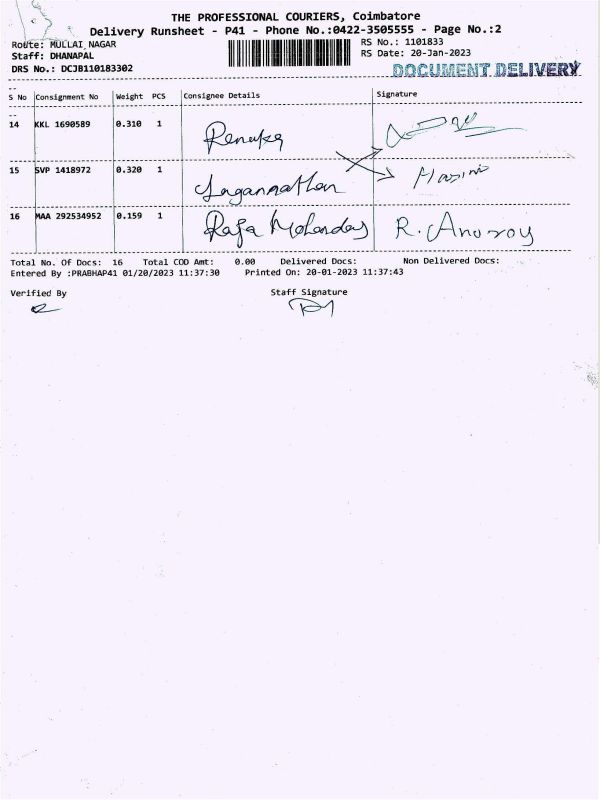 THE PROFESSIONAL COURIERS, Coimbatore
Delivery Runsheet - P41 - Phone No.:0422-3505555 - Page No.:2
Route: MULLAI NAGAR RS No.: 1101833
Staff: DHANAPAL RS Date: 20-Jan-2023
DRS No.: DCJB110183302 DOCUMENT DELIVERY
S No Consignment No Weight PCS Consignee Details Signature
14 KKL 1690589 0.310 1 Renuka
15 SVP 1418972 0.320 1 Jagannathan
16 MAA 292534952 0.159 1 Raja Mohandas R.
Total No. Of Docs: 16 Total COD Amt: 0.00 Delivered Docs: Non Delivered Docs:
Entered By :PRABHAP41 01/20/2023 11:37:30 Printed On: 20-01-2023 11:37:43
Verified By Staff Signature